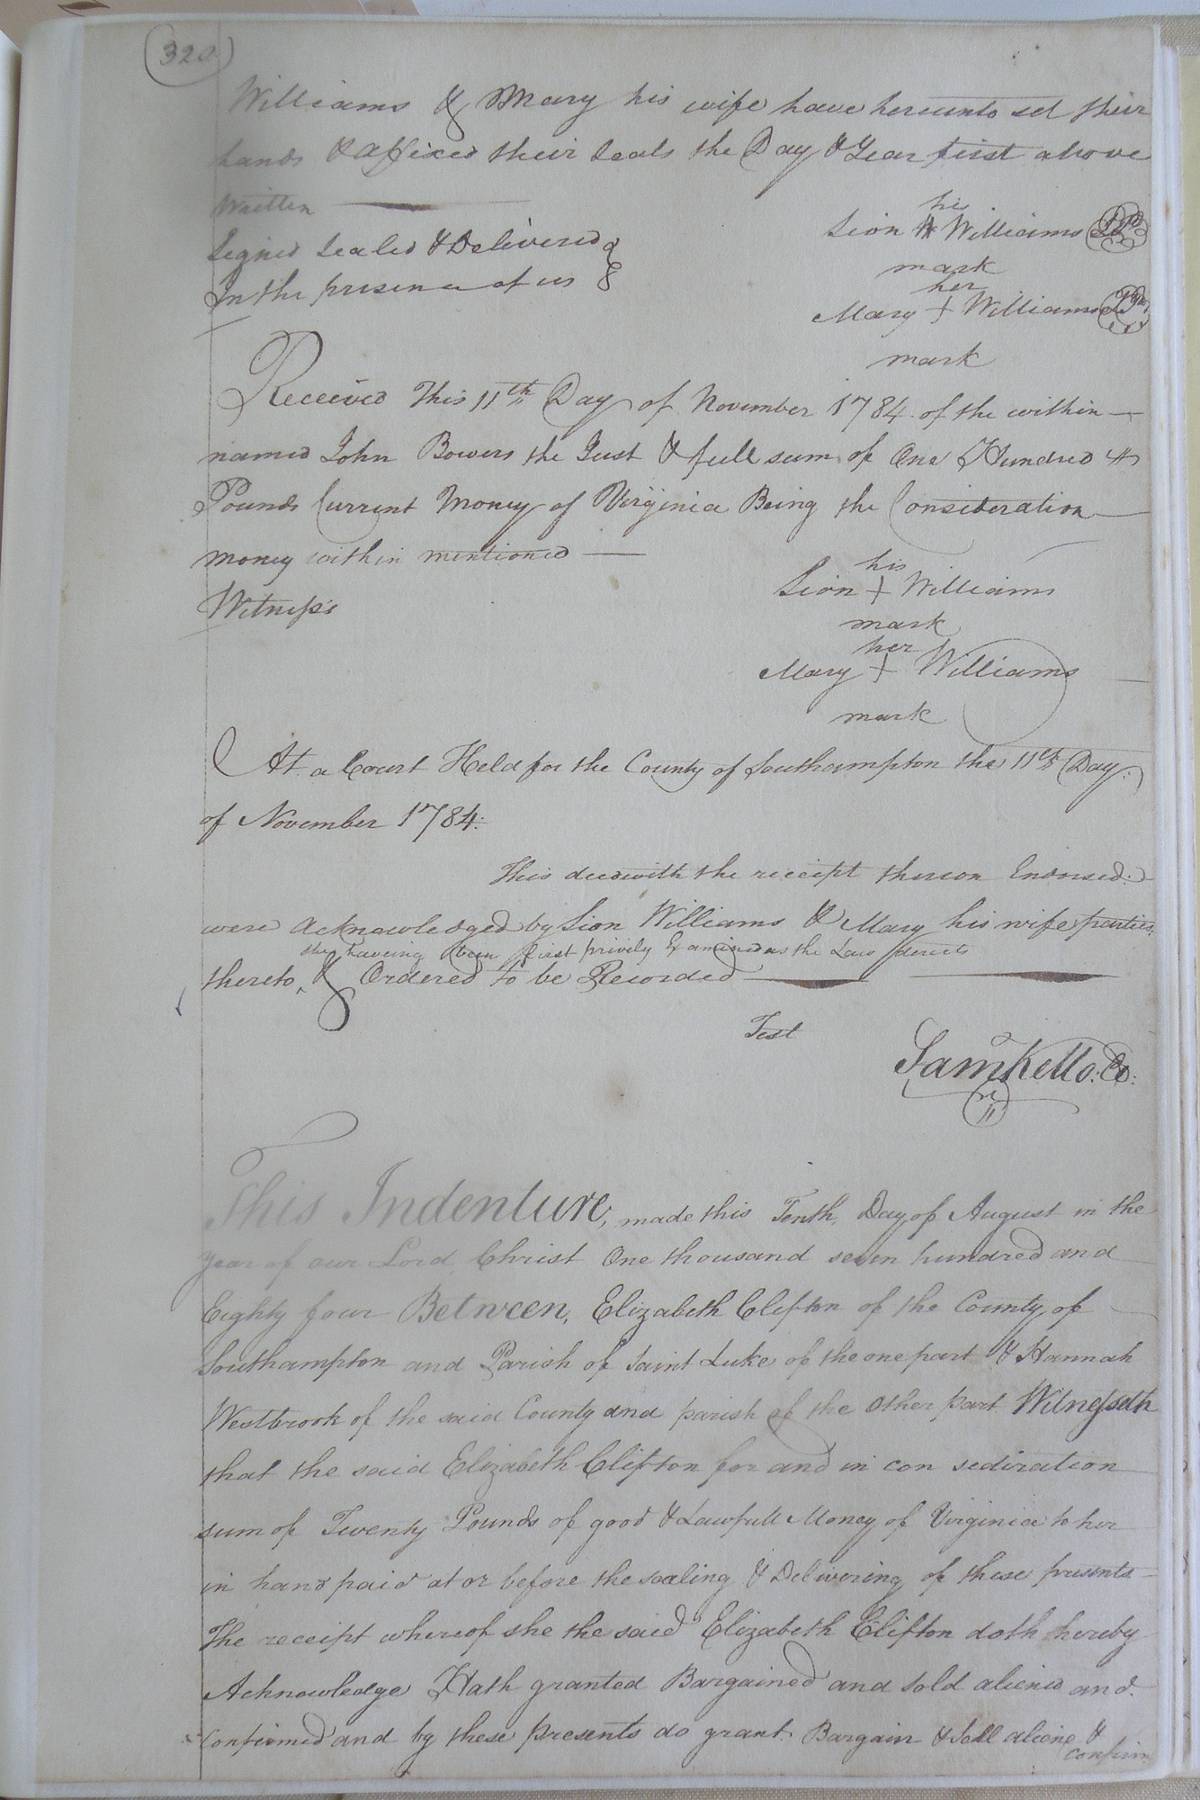 320
Williams & Mary his wife have hereunto set their
hands & affixed their seals the Day & Year first above
Written
his
Signed Sealed & Delivered
Lion Williams
mark
In the presence of us
her
Mary + Williams
mark
Received This 11th Day of November 1784 of the within
named John Bowers the Just & full sum of One Hundred
Pounds Current Money of Virginia Being the Consideration
money within mentioned
his
Lion + Williams
Witness
mark
her
Mary + Williams
mark
At a Court Held for the County of Southampton the 11th Day
of November 1784:
This deed with the receipt thereon Endorsed
were Acknowledged by Lion Williams & Mary his wife parties
she haveing been first privily Examined as the Law directs
thereto, & Ordered to be Recorded
Test
Saml Kello: C:
This Indenture, made this Tenth Day of August in the
year of our Lord Christ One thousand seven hundred and
Eighty four Between, Elizabeth Clifton of the County of
Southampton and Parish of Saint Luke of the one part & Hannah
Westbrook of the said County and parish of the Other part Witnesseth
that the said Elizabeth Clifton for and in con sediration
sum of Twenty Pounds of good & Lawfull Money of Virginia to her
in hand paid at or before the sealing & Delivering of these presents
The receipt whereof she the said Elizabeth Clifton doth hereby
Acknowledge Hath granted Bargained and sold aliened and
Confirmed and by these presents do grant Bargain & Sell aliene &
confirm